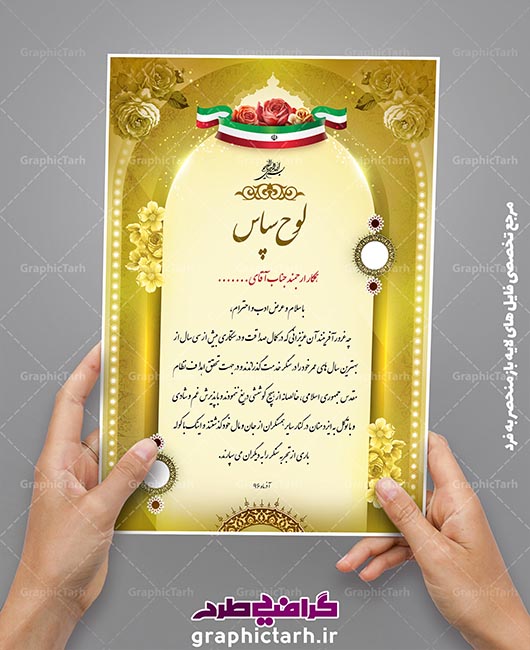 GraphicTarh GraphicTarh GraphicTarh
لوح سپاس
همکار ارجمند جناب آقای.......
با سلام و عرض ادب و احترام،
چه غرورآفرینند آن عزیزانی که در کمال صداقت و درستکاری بیش از سی سال از
بهترین سال های عمر خود را در سنگر خدمت گذرانده و در جهت تحقق اهداف نظام
مقدس جمهوری اسلامی، خالصانه از هیچ کوششی دریغ ننموده و با پذیرش غم و شادی
و با توکل به ایزد منان در کنار سایر همسنگران از جان و مال خود گذشتند و اینک با کوله
باری از تجربه سنگر را به دیگران می سپارند.
آذرماه ۹۶
مرجع تخصصی فایل های لایه باز منحصر به فرد
گرافیک طرح
graphictarh.ir